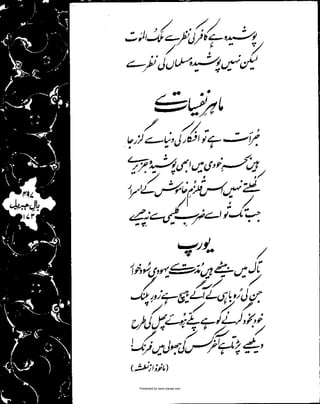 پوشیدہ ہے کافر کی نظر سے ملک الموت
لیکن نہیں پوشیدہ مسلماں کی نظر سے
ماہر نفسیات سے
جرأت ہے تو افکار کی دنیا سے گزر جا
ہیں بحر خودی میں ابھی پوشیدہ جزیرے
کھلتے نہیں اس قلزم خاموش کے اسرار
جب تک تو اسے ضرب کلیمی سے نہ چیرے
یورپ
تاک میں بیٹھے ہیں مدت سے یہودی سود خوار
جن کی روباہی کے آگے ہیچ ہے زور پلنگ
خود بخود گرنے کو ہے پکے ہوئے پھل کی طرح
دیکھیے پڑتا ہے آخر کس کی جھولی میں فرنگ!
(ماخوذ از نطشہ)
۴۹۷
بال جبریل
۱۷۳
Presented by www.ziaraat.com